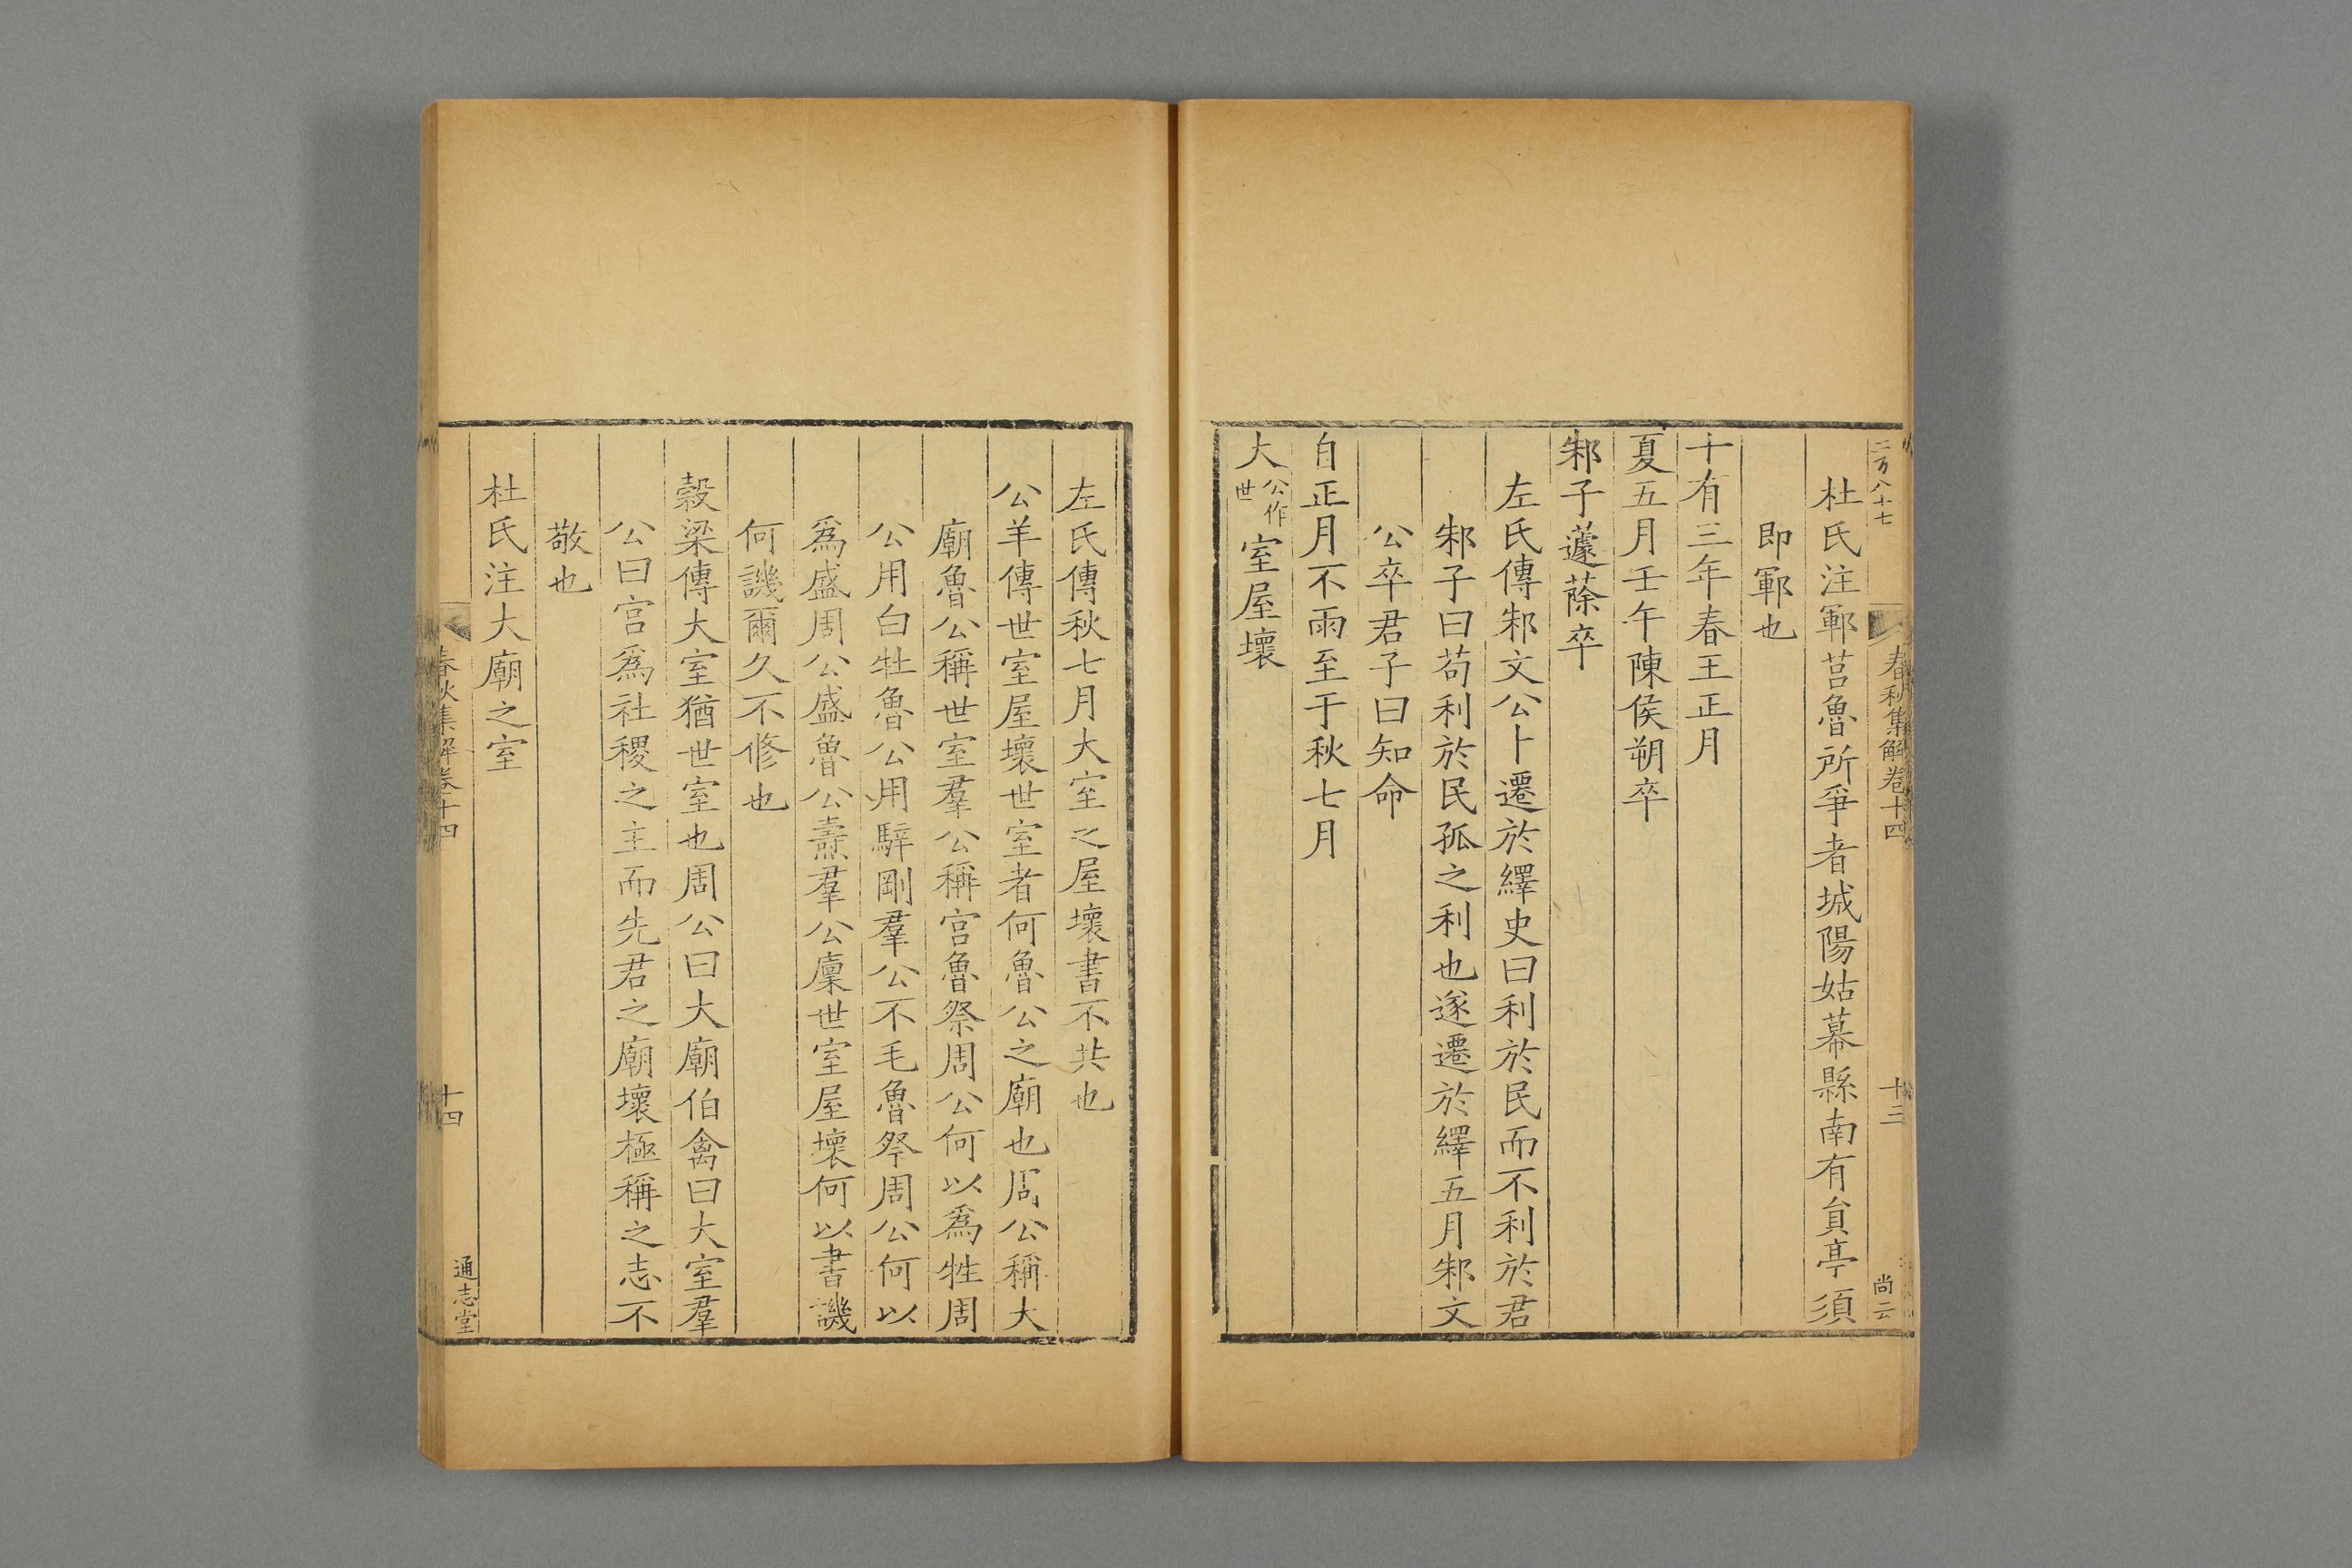 二百八十七
春秋集解卷十四
十三
尚云
杜氏注鄆莒魯所爭者城陽姑幕縣南有員亭須
即鄆也
十有三年春王正月
夏五月壬午陳侯朔卒
邾子蘧蒢卒
左氏傳邾文公卜遷於繹史曰利於民而不利於君
邾子曰苟利於民孤之利也遂遷於繹五月邾文
公卒君子曰知命
自正月不雨至于秋七月
大公作世室屋壞
左氏傳秋七月大室之屋壞書不共也
公羊傳世室屋壞世室者何魯公之廟也周公稱大
廟魯公稱世室羣公稱宮魯祭周公何以爲牲周
公用白牡魯公用騂剛羣公不毛魯祭周公何以
爲盛周公盛魯公燾羣公廩世室屋壞何以書譏
何譏爾久不修也
榖梁傳大室猶世室也周公曰大廟伯禽曰大室羣
公曰宮爲社稷之主而先君之廟壞極稱之志不
敬也
杜氏注大廟之室
春秋集解卷十四
十四
通志堂